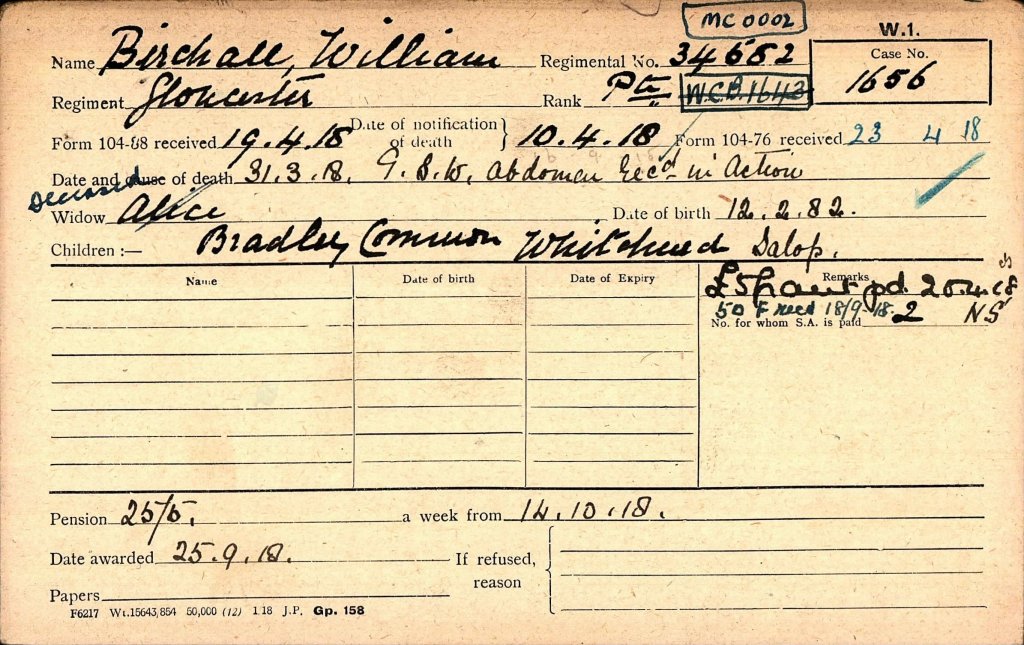 MC 0002
W.1.
Name Birchall, William Regimental No. 34552 Case No.
1656
Regiment Gloucester Rank Pte W.C.B. 1643
Form 104-88 received 19.4.18 Date of notification of death } 10.4.18 Form 104-76 received 23 4 18
Date and cause of death 31.3.18. G.S.W. Abdomen Recd in Action
Deceased
Widow Alice Date of birth 12.2.82.
Children :— Bradley Common Whitchurch Salop.
Name Date of birth Date of Expiry Remarks
£5 Grant pd. 20.4.18
50 F recd 18/9.18.
No. for whom S.A. is paid 2 NS
Pension 25/5. a week from 14.10.18.
Date awarded 25.9.18. If refused, reason
Papers
F6217 Wt.15643,854 50,000 (12) 1 18 J.P. Gp. 158